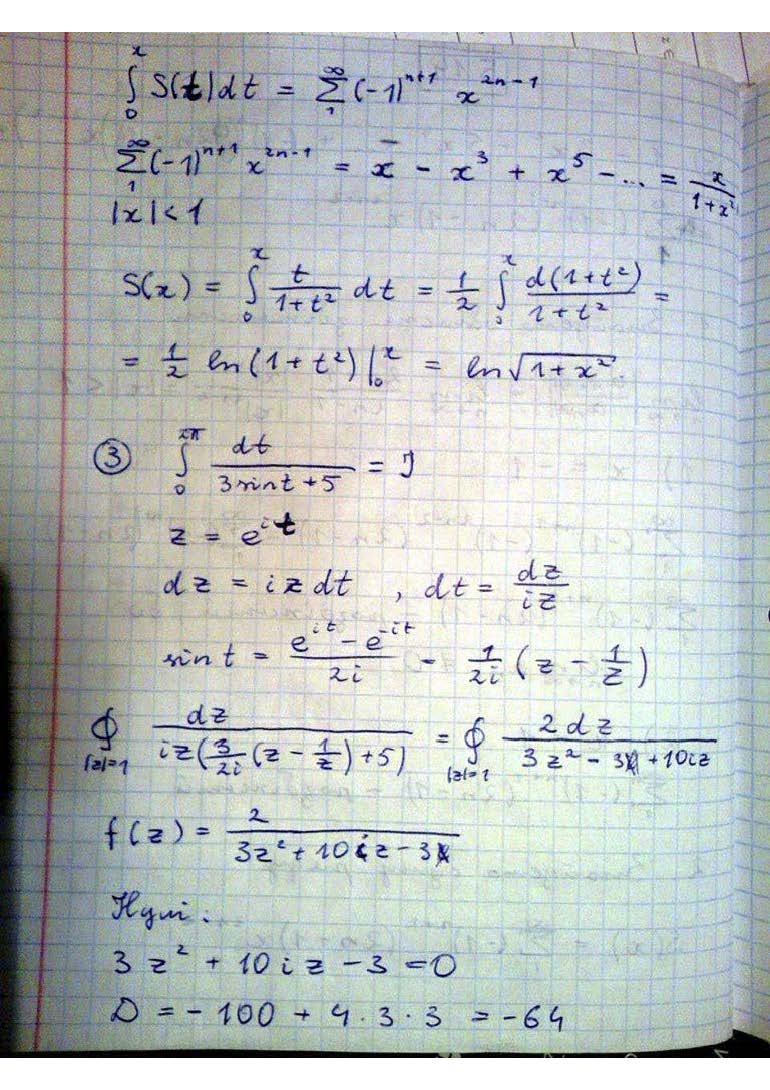 ∫₀ˣ S(t)dt = ∑₁^∞ (-1)ⁿ⁺¹ x²ⁿ⁻¹
∑₁^∞ (-1)ⁿ⁺¹ x²ⁿ⁻¹ = x - x³ + x⁵ - ... = x/(1+x²)
|x| < 1
S(x) = ∫₀ˣ t/(1+t²) dt = 1/2 ∫₀ˣ d(1+t²)/(1+t²) =
= 1/2 ln(1+t²)|₀ˣ = ln√(1+x²).
③ ∫₀^{2π} dt/(3sint+5) = J
z = e^{it}
dz = iz dt , dt = dz/(iz)
sin t = (e^{it} - e^{-it})/(2i) - 1/(2i) (z - 1/z)
∮_{|z|=1} dz/(iz(3/(2i)(z - 1/z)+5)) = ∮_{|z|=1} 2dz/(3z² - 3 + 10iz)
f(z) = 2/(3z² + 10iz - 3)
Нулі:
3z² + 10iz - 3 = 0
D = -100 + 4·3·3 = -64